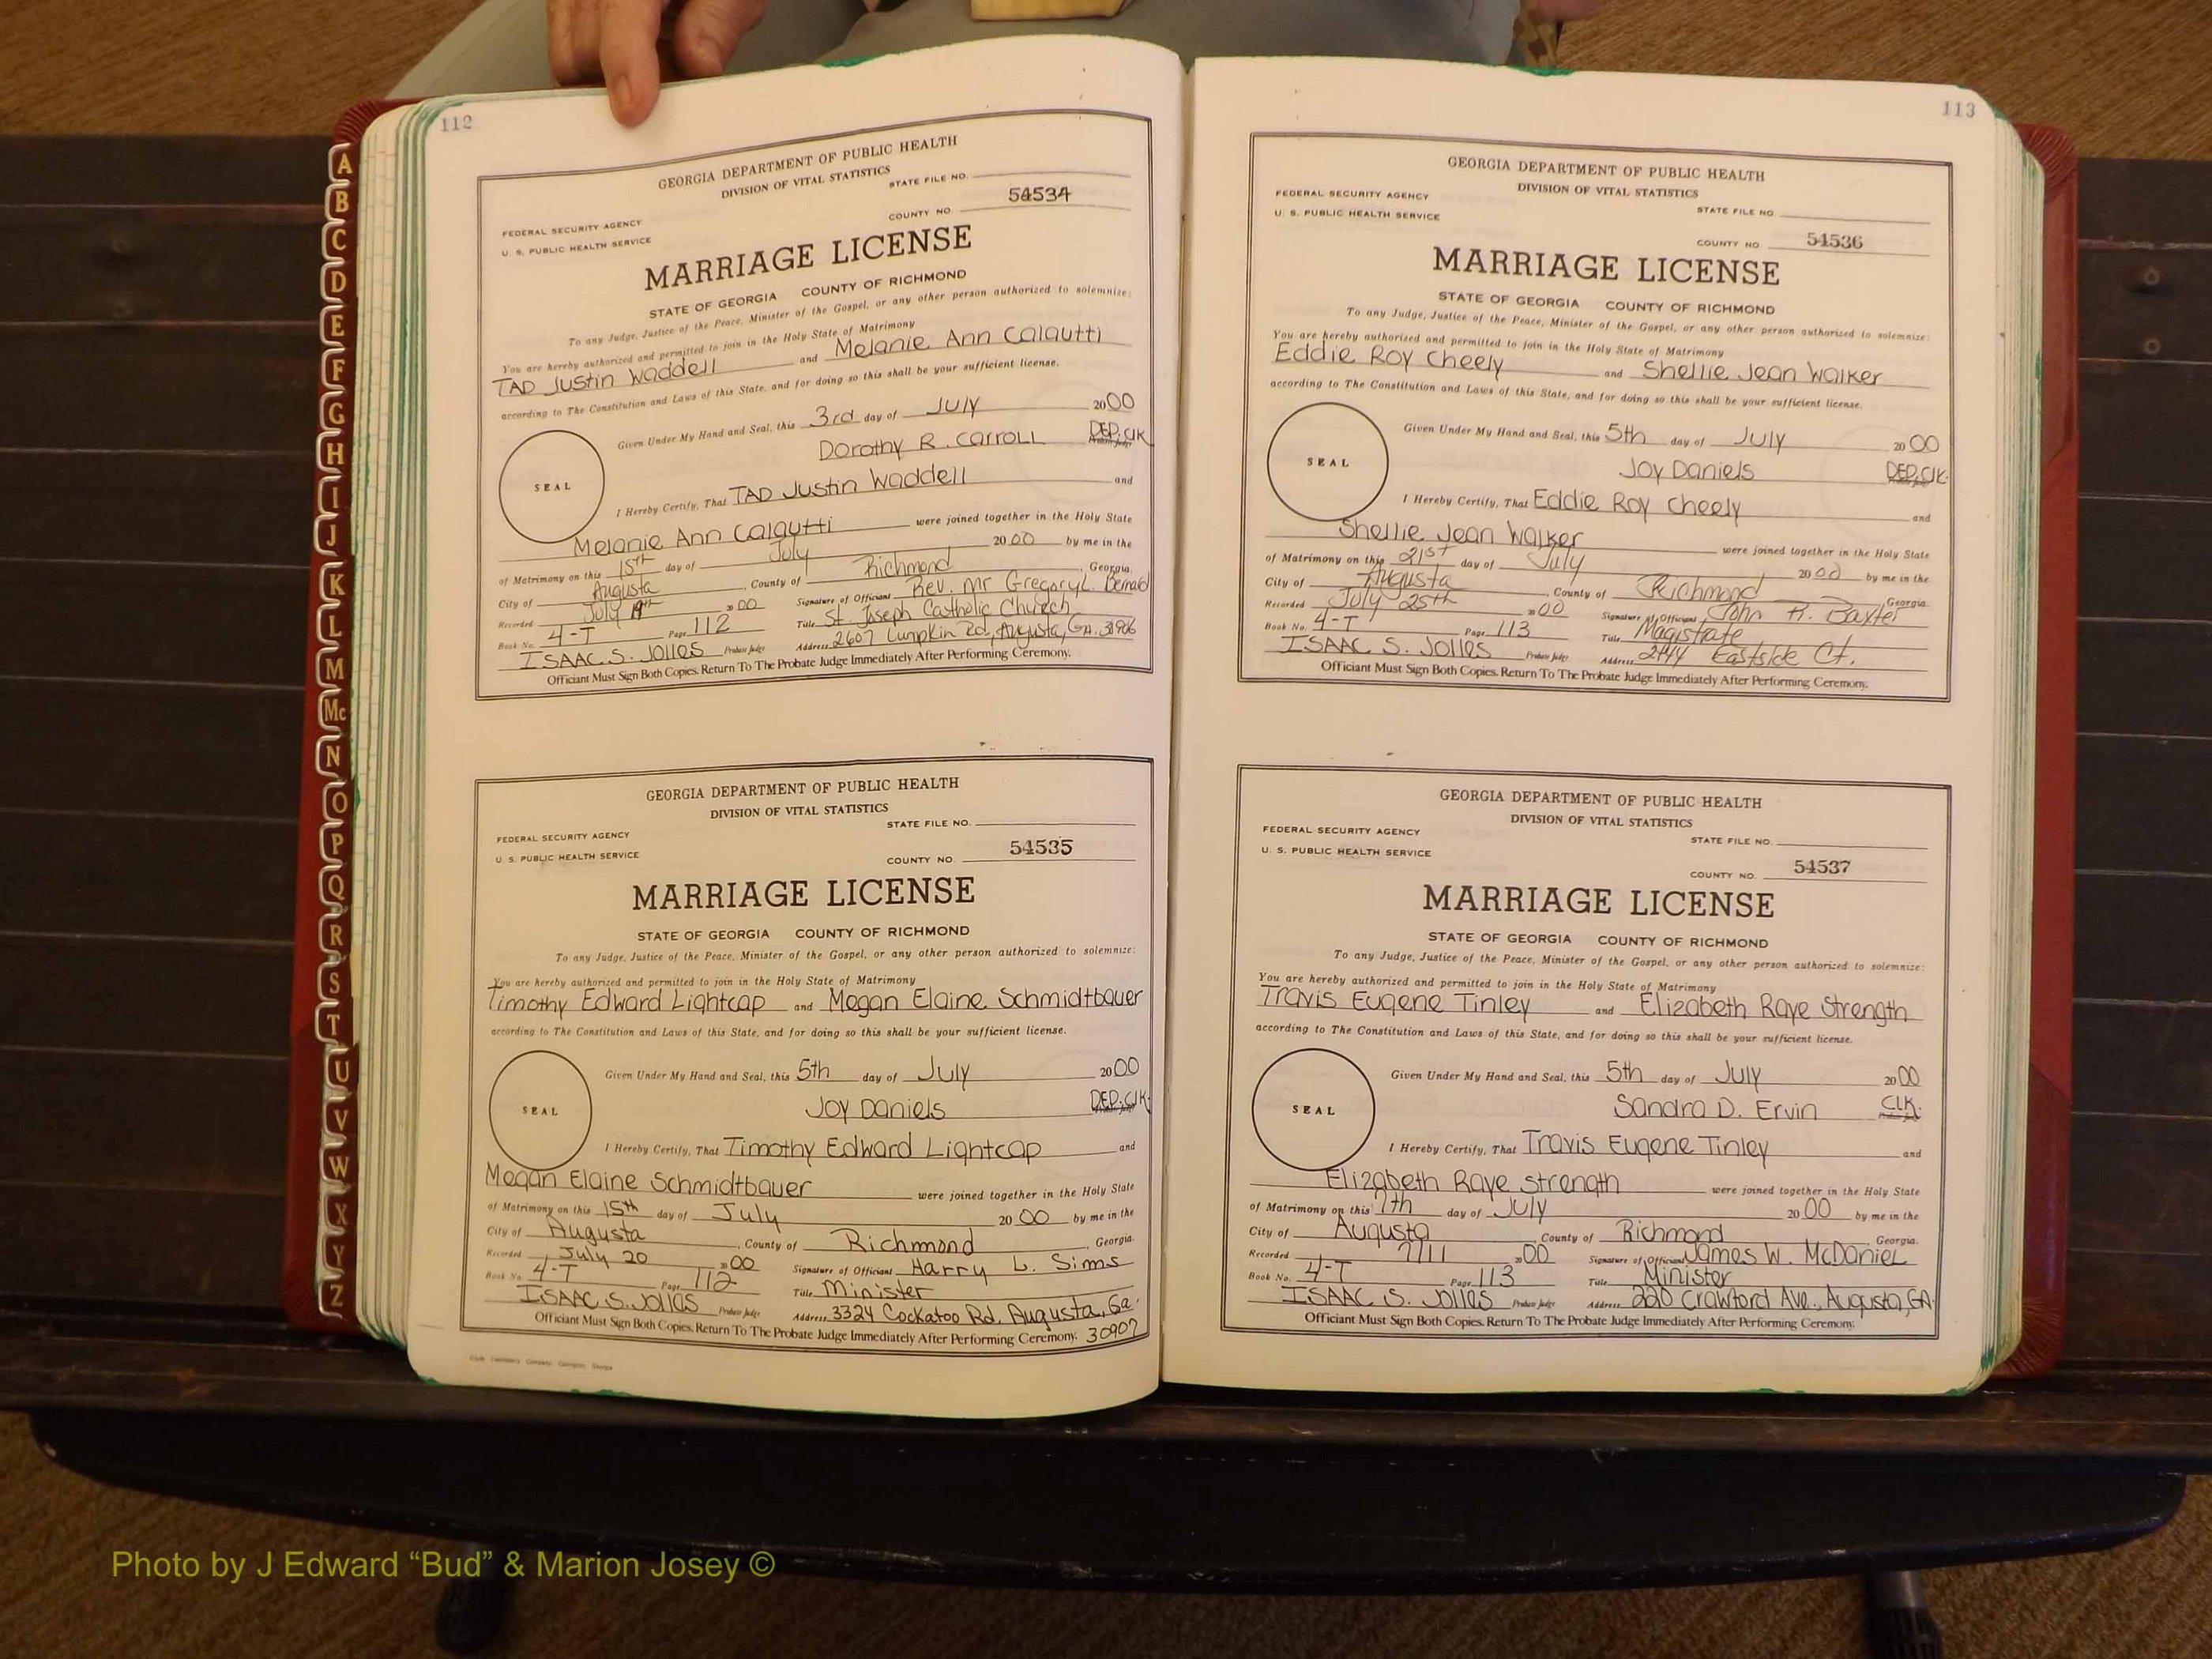 112
GEORGIA DEPARTMENT OF PUBLIC HEALTH
DIVISION OF VITAL STATISTICS
STATE FILE NO.
FEDERAL SECURITY AGENCY
U. S. PUBLIC HEALTH SERVICE
COUNTY NO. 54534
MARRIAGE LICENSE
STATE OF GEORGIA COUNTY OF RICHMOND
To any Judge, Justice of the Peace, Minister of the Gospel, or any other person authorized to solemnize:
You are hereby authorized and permitted to join in the Holy State of Matrimony
TAD Justin Waddell and Melanie Ann Calautti
according to The Constitution and Laws of this State, and for doing so this shall be your sufficient license.
Given Under My Hand and Seal, this 3rd day of JULY 2000
Dorothy R. Carroll DEP. Clk
SEAL
I Hereby Certify, That TAD Justin Waddell and
Melanie Ann Calautti were joined together in the Holy State
of Matrimony on this 15th day of July 2000 by me in the
City of Augusta, County of Richmond, Georgia.
Recorded July 19th 2000 Signature of Officiant Rev. Mr Gregory L. Bernard
Book No. 4-T Page 112 Title St. Joseph Catholic Church
ISAAC S. Jolles Probate Judge Address 2607 Lumpkin Rd, Augusta, GA. 30906
Officiant Must Sign Both Copies. Return To The Probate Judge Immediately After Performing Ceremony.
GEORGIA DEPARTMENT OF PUBLIC HEALTH
DIVISION OF VITAL STATISTICS
STATE FILE NO.
FEDERAL SECURITY AGENCY
U. S. PUBLIC HEALTH SERVICE
COUNTY NO. 54535
MARRIAGE LICENSE
STATE OF GEORGIA COUNTY OF RICHMOND
To any Judge, Justice of the Peace, Minister of the Gospel, or any other person authorized to solemnize:
You are hereby authorized and permitted to join in the Holy State of Matrimony
Timothy Edward Lightcap and Megan Elaine Schmidtbauer
according to The Constitution and Laws of this State, and for doing so this shall be your sufficient license.
Given Under My Hand and Seal, this 5th day of July 2000
Joy Daniels DEP. Clk.
SEAL
I Hereby Certify, That Timothy Edward Lightcap and
Megan Elaine Schmidtbauer were joined together in the Holy State
of Matrimony on this 15th day of July 2000 by me in the
City of Augusta, County of Richmond, Georgia.
Recorded July 20 2000 Signature of Officiant Harry L. Sims
Book No. 4-T Page 112 Title Minister
ISAAC S. Jolles Probate Judge Address 3324 Cockatoo Rd. Augusta, Ga.
Officiant Must Sign Both Copies. Return To The Probate Judge Immediately After Performing Ceremony. 30907
113
GEORGIA DEPARTMENT OF PUBLIC HEALTH
DIVISION OF VITAL STATISTICS
FEDERAL SECURITY AGENCY
U. S. PUBLIC HEALTH SERVICE
STATE FILE NO.
COUNTY NO. 54536
MARRIAGE LICENSE
STATE OF GEORGIA COUNTY OF RICHMOND
To any Judge, Justice of the Peace, Minister of the Gospel, or any other person authorized to solemnize:
You are hereby authorized and permitted to join in the Holy State of Matrimony
Eddie Roy Cheely and Shellie Jean Walker
according to The Constitution and Laws of this State, and for doing so this shall be your sufficient license.
Given Under My Hand and Seal, this 5th day of July 2000
Joy Daniels DEP. Clk.
SEAL
I Hereby Certify, That Eddie Roy Cheely and
Shellie Jean Walker were joined together in the Holy State
of Matrimony on this 21st day of July 2000 by me in the
City of Augusta, County of Richmond Georgia.
Recorded July 25th 2000 Signature of Officiant John H. Baxter
Book No. 4-T Page 113 Title Magistrate
ISAAC S. Jolles Probate Judge Address 2144 Eastside Ct.
Officiant Must Sign Both Copies. Return To The Probate Judge Immediately After Performing Ceremony.
GEORGIA DEPARTMENT OF PUBLIC HEALTH
DIVISION OF VITAL STATISTICS
FEDERAL SECURITY AGENCY
STATE FILE NO.
U. S. PUBLIC HEALTH SERVICE
COUNTY NO. 54537
MARRIAGE LICENSE
STATE OF GEORGIA COUNTY OF RICHMOND
To any Judge, Justice of the Peace, Minister of the Gospel, or any other person authorized to solemnize:
You are hereby authorized and permitted to join in the Holy State of Matrimony
Travis Eugene Tinley and Elizabeth Raye Strength
according to The Constitution and Laws of this State, and for doing so this shall be your sufficient license.
Given Under My Hand and Seal, this 5th day of July 2000
Sandra D. Ervin Clk.
SEAL
I Hereby Certify, That Travis Eugene Tinley and
Elizabeth Raye Strength were joined together in the Holy State
of Matrimony on this 7th day of July 2000 by me in the
City of Augusta, County of Richmond, Georgia.
Recorded 7/11 2000 Signature of Officiant James W. McDaniel
Book No. 4-T Page 113 Title Minister
ISAAC S. Jolles Probate Judge Address 220 Crawford Ave., Augusta, GA.
Officiant Must Sign Both Copies. Return To The Probate Judge Immediately After Performing Ceremony.
A
B
C
D
E
F
G
H
I
J
K
L
M
Mc
N
O
P
Q
R
S
T
U
V
W
X
Y
Z
Photo by J Edward “Bud” & Marion Josey ©